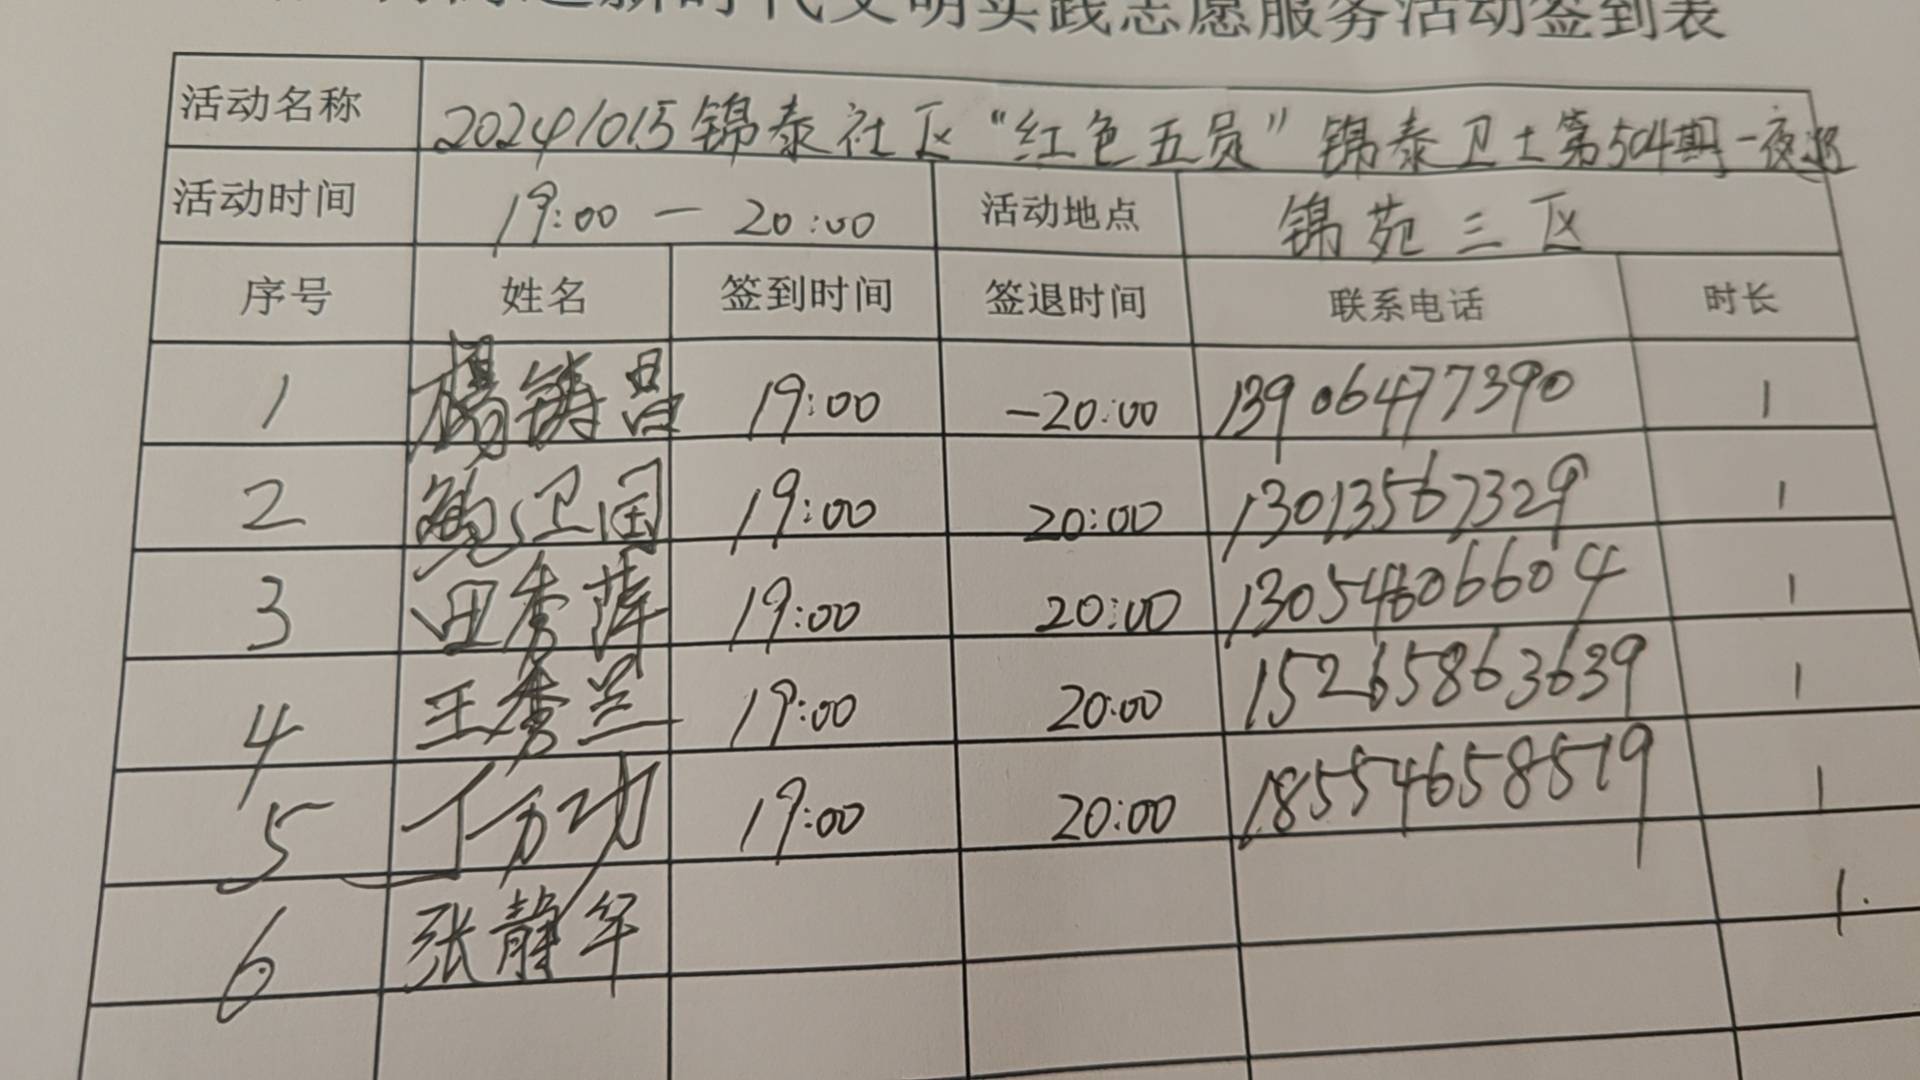 新时代文明实践志愿服务活动签到表
活动名称 20241015锦泰社区“红色五员”锦泰卫士第504期一夜巡
活动时间 19:00 — 20:00 活动地点 锦苑三区
序号 姓名 签到时间 签退时间 联系电话 时长
1 杨铸昌 19:00 -20:00 13906477390 1
2 鲍卫国 19:00 20:00 13013567329 1
3 田秀萍 19:00 20:00 13054806604 1
4 王秀兰 19:00 20:00 15265863639 1
5 丁万功 19:00 20:00 18554658519 1
6 张静 1.